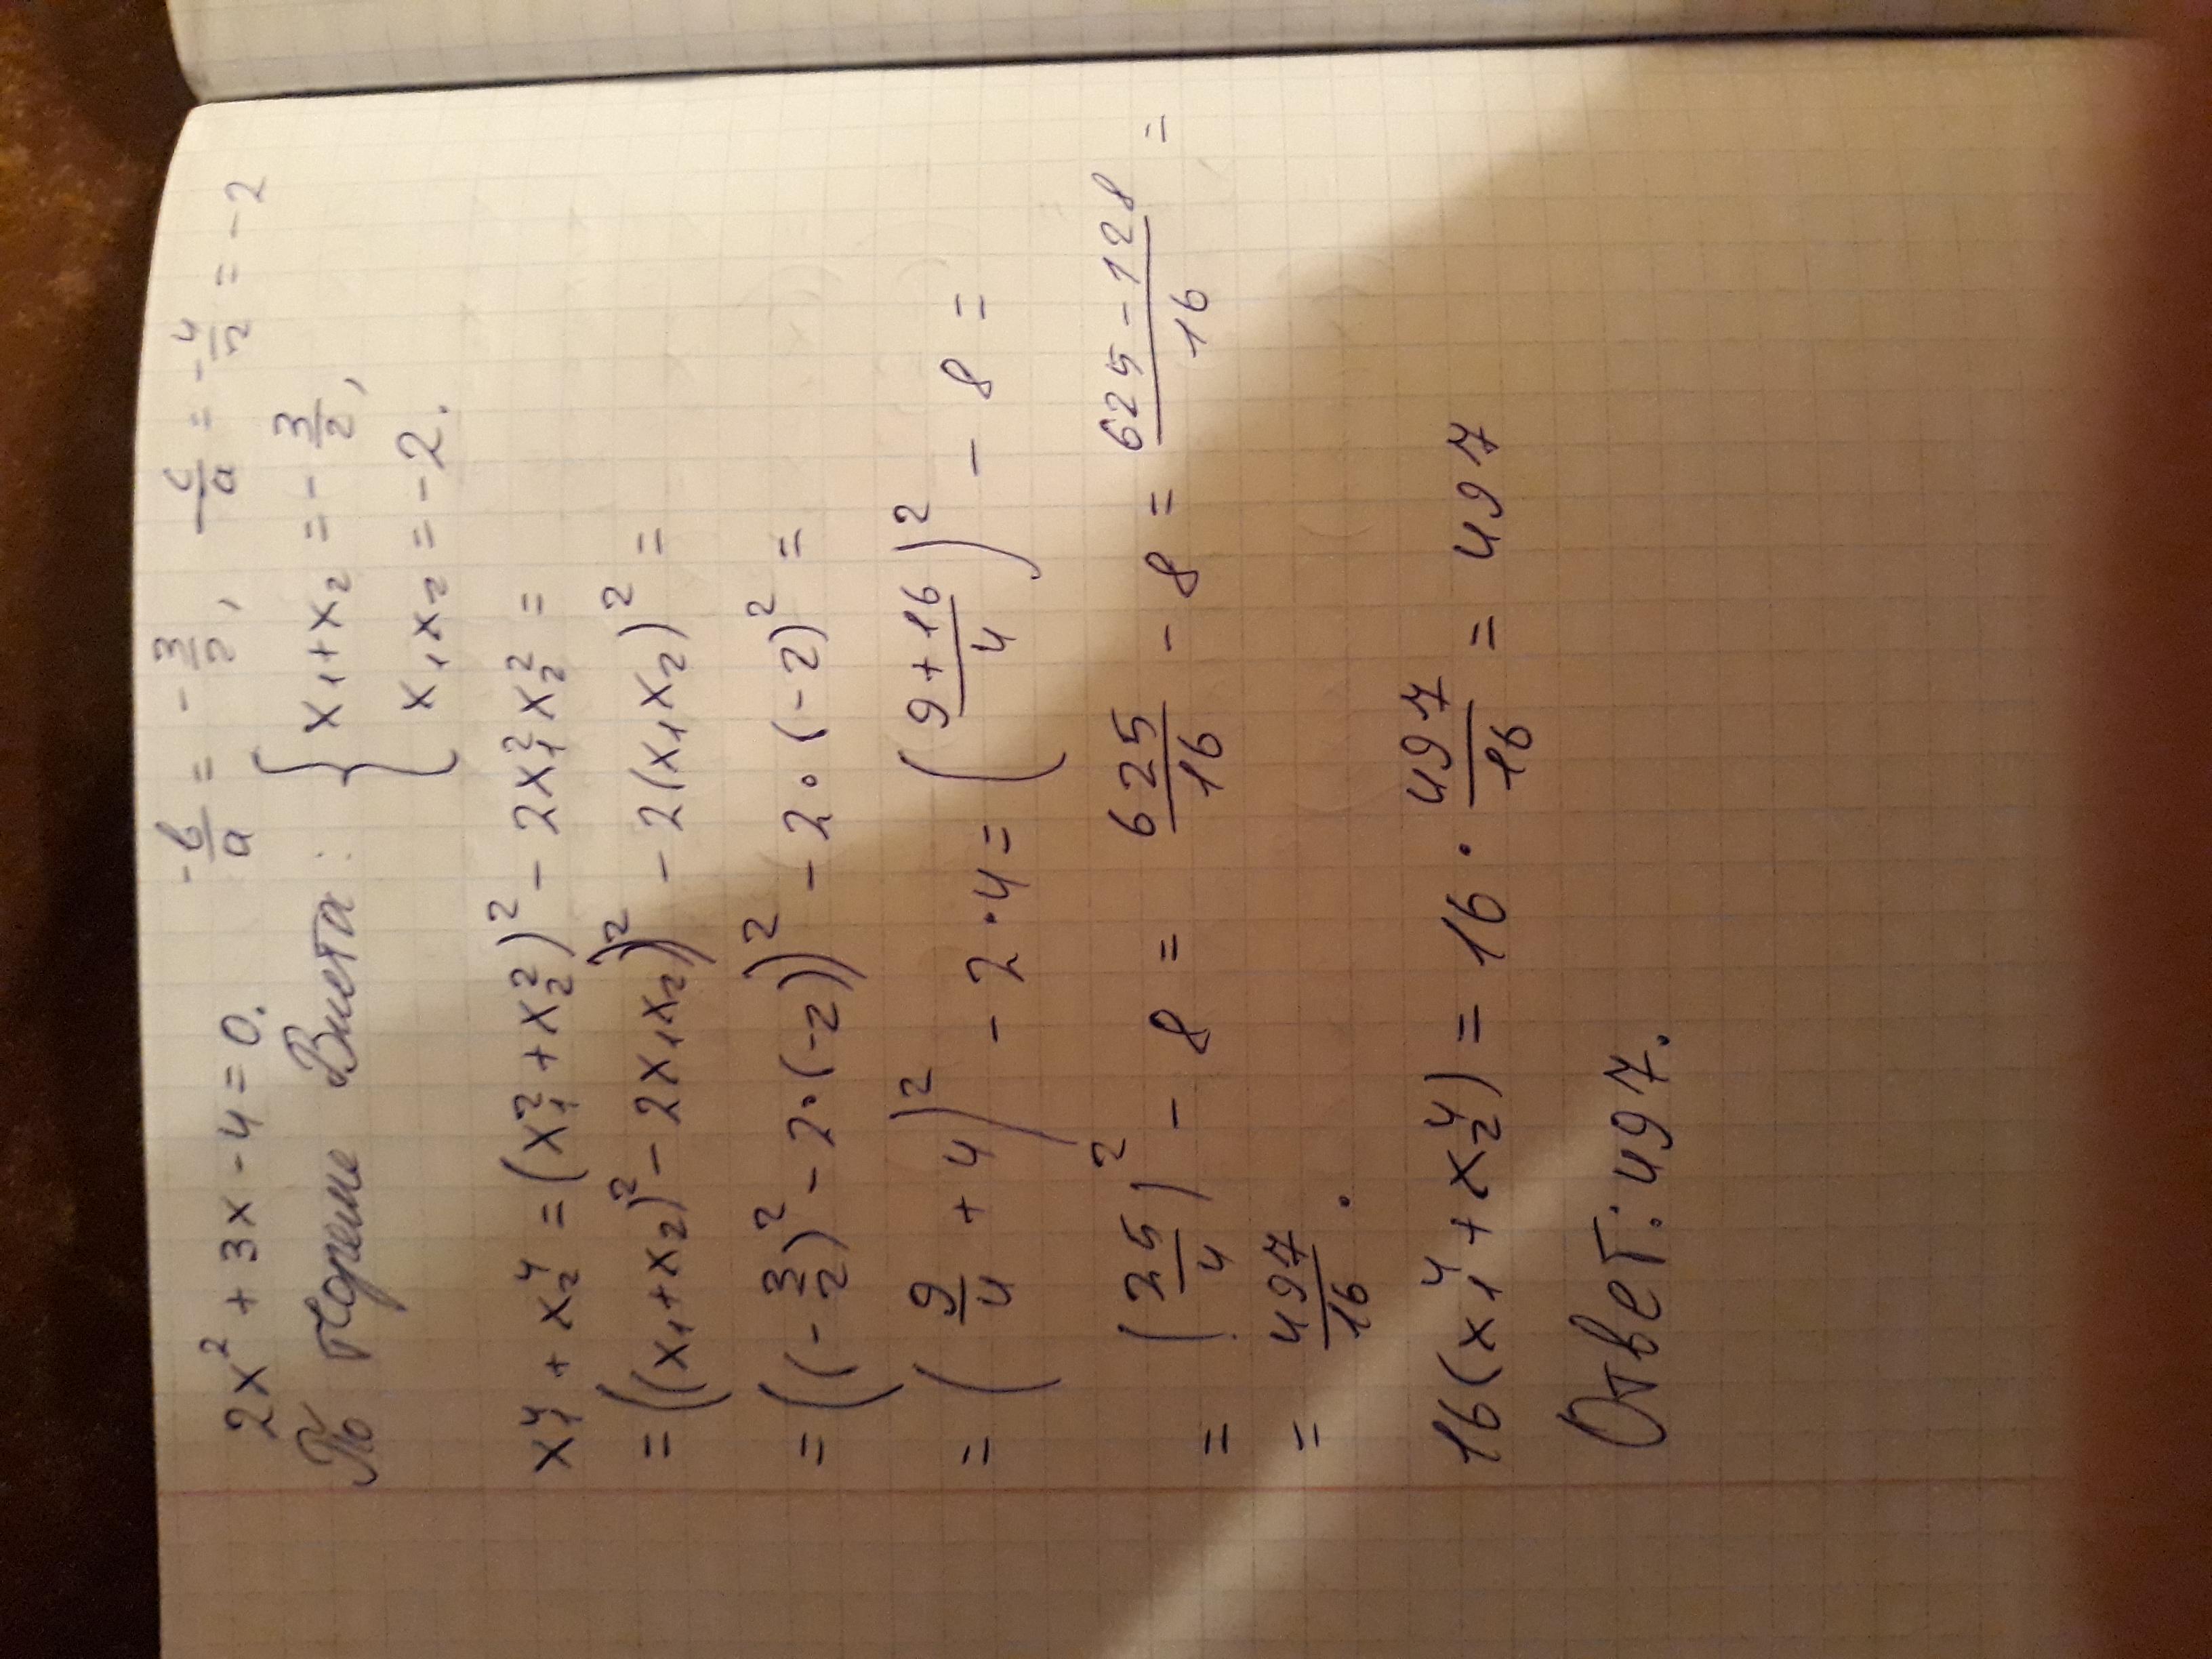 -b/a = -3/2, -c/a = -4/2 = -2
2x² + 3x - 4 = 0.
По теореме Виета: { x₁ + x₂ = -3/2,
x₁x₂ = -2.
x₁⁴ + x₂⁴ = (x₁² + x₂²)² - 2x₁²x₂² =
= ((x₁ + x₂)² - 2x₁x₂)² - 2(x₁x₂)² =
= ((-3/2)² - 2·(-2))² - 2·(-2)² =
= (9/4 + 4)² - 2·4 = ((9+16)/4)² - 8 =
= (25/4)² - 8 = 625/16 - 8 = (625-128)/16 =
= 497/16.
16(x₁⁴ + x₂⁴) = 16 · 497/16 = 497
Ответ: 497.